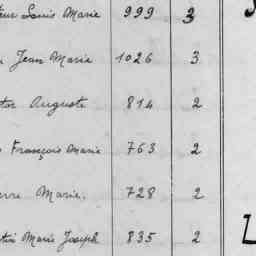 Louis Marie 999 3
Jean Marie 1026 3
Auguste 814 2
François Marie 763 2
Marie. 728 2
Marie Joseph 835 2